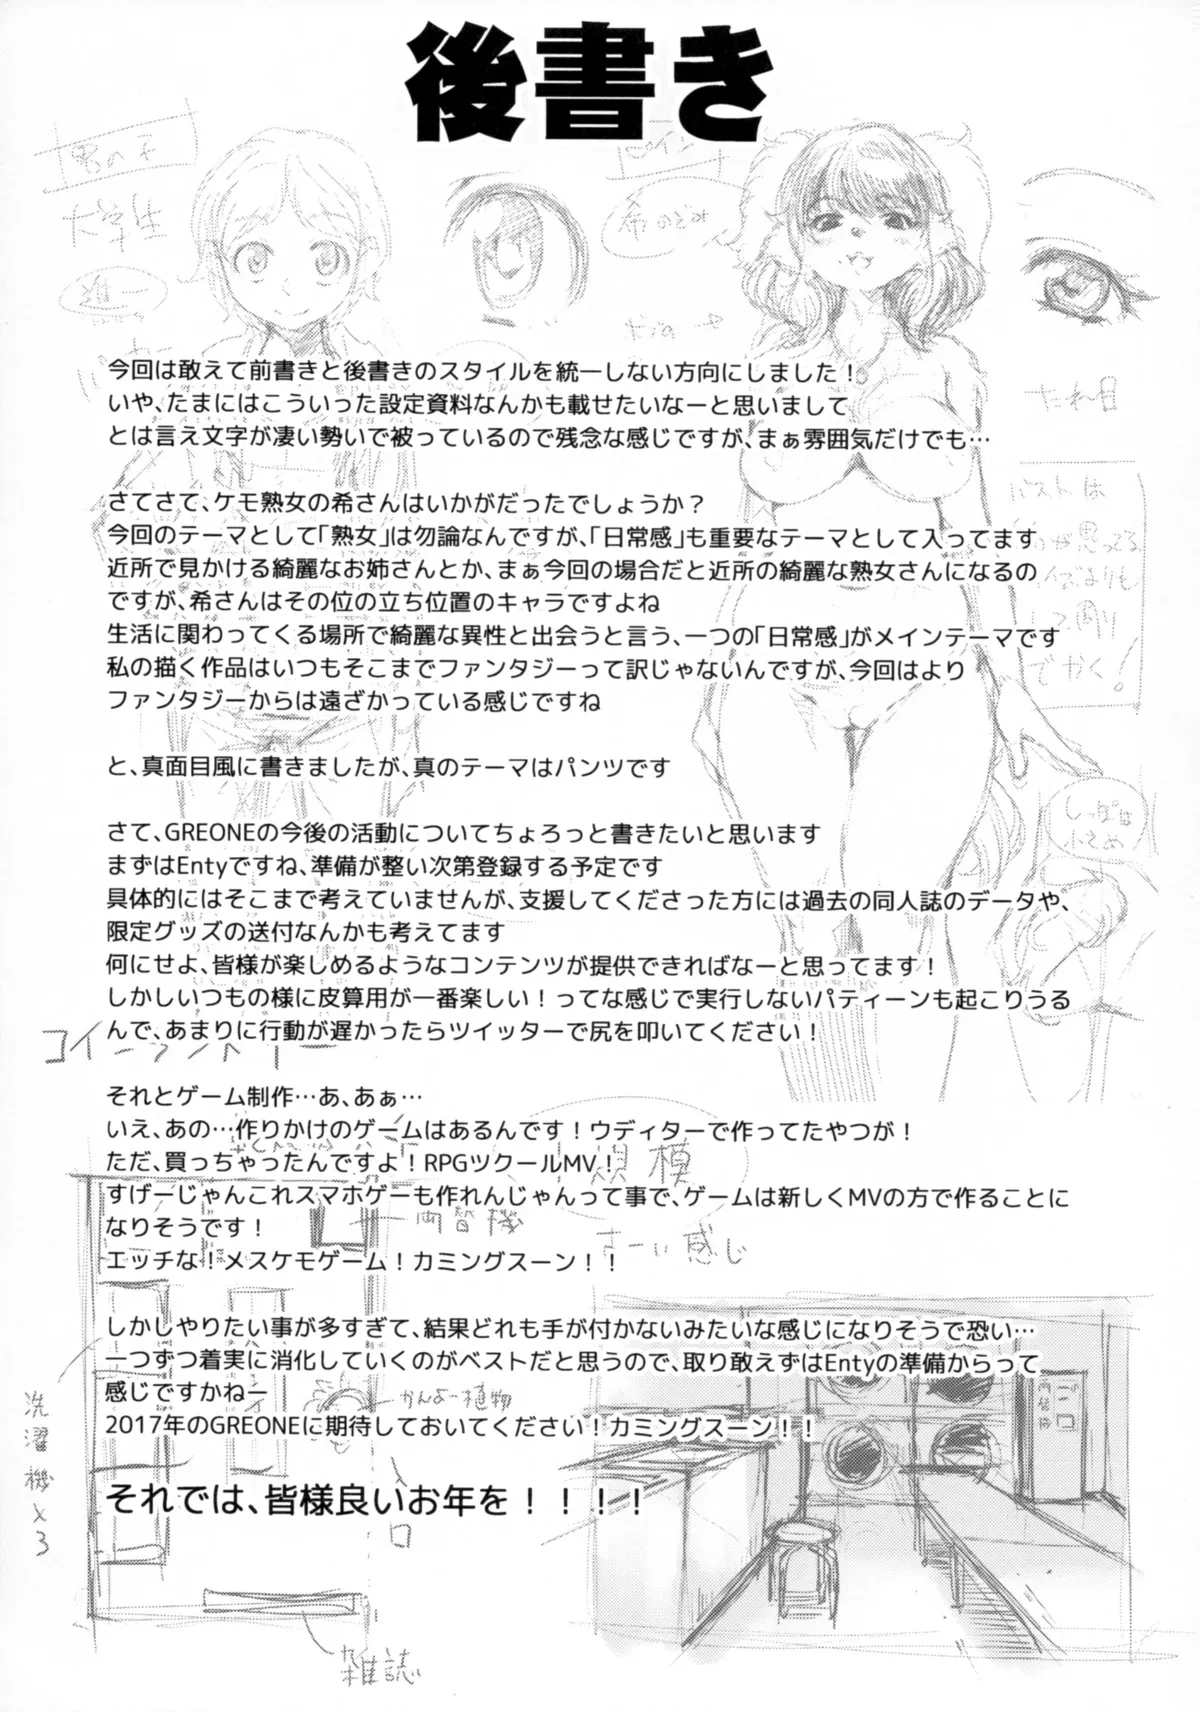 後書き
男の子
大学生
進一
ヒロイン
希 のぞみ
たれ目
今回は敢えて前書きと後書きのスタイルを統一しない方向にしました！
いや、たまにはこういった設定資料なんかも載せたいなーと思いまして
とは言え文字が凄い勢いで被っているので残念な感じですが、まぁ雰囲気だけでも…
さてさて、ケモ熟女の希さんはいかがだったでしょうか？
今回のテーマとして「熟女」は勿論なんですが、「日常感」も重要なテーマとして入ってます
近所で見かける綺麗なお姉さんとか、まぁ今回の場合だと近所の綺麗な熟女さんになるの
ですが、希さんはその位の立ち位置のキャラですよね
生活に関わってくる場所で綺麗な異性と出会うと言う、一つの「日常感」がメインテーマです
私の描く作品はいつもそこまでファンタジーって訳じゃないんですが、今回はより
ファンタジーからは遠ざかっている感じですね
バストは
でかく！
と、真面目風に書きましたが、真のテーマはパンツです
しっぽは
小さめ
さて、GREONEの今後の活動についてちょろっと書きたいと思います
まずはEntyですね、準備が整い次第登録する予定です
具体的にはそこまで考えていませんが、支援してくださった方には過去の同人誌のデータや、
限定グッズの送付なんかも考えてます
何にせよ、皆様が楽しめるようなコンテンツが提供できればなーと思ってます！
しかしいつもの様に皮算用が一番楽しい！ってな感じで実行しないパティーンも起こりうる
んで、あまりに行動が遅かったらツイッターで尻を叩いてください！
コインランドリー
それとゲーム制作…あ、あぁ…
いえ、あの…作りかけのゲームはあるんです！ウディターで作ってたやつが！
ただ、買っちゃったんですよ！RPGツクールMV！
すげーじゃんこれスマホゲーも作れんじゃんって事で、ゲームは新しくMVの方で作ることに
なりそうです！
エッチな！メスケモゲーム！カミングスーン！！
両替機
規模
感じ
しかしやりたい事が多すぎて、結果どれも手が付かないみたいな感じになりそうで恐い…
一つずつ着実に消化していくのがベストだと思うので、取り敢えずはEntyの準備からって
感じですかねー
2017年のGREONEに期待しておいてください！カミングスーン！！
かんよー植物
洗濯機×3
両替機
それでは、皆様良いお年を！！！！
入口
雑誌